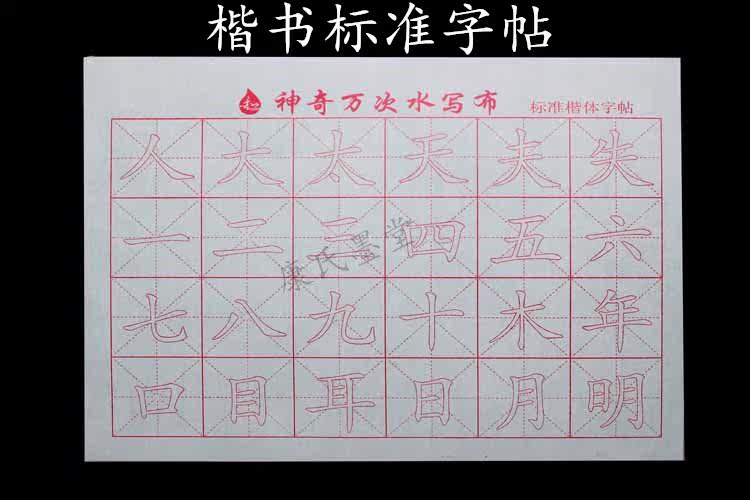 楷书标准字帖
和 神奇万次水写布 标准楷体字帖
人大太天夫失
一二三四五六
康氏墨堂
七八九十木年
口目耳日月明